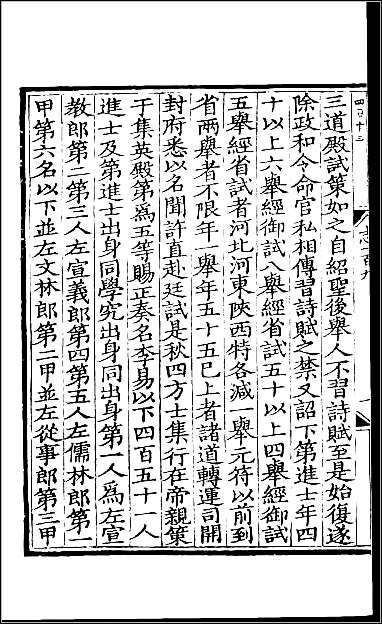 四百十三
三道殿試策如之自紹聖後舉人不習詩賦至是始復遂
除政和令命官私相傳習詩賦之禁又詔下第進士年四
十以上六舉經御試八舉經省試五十以上四舉經御試
五舉經省試者河北河東陝西特各減一舉元符以前到
省兩舉者不限年一舉年五十五已上者諸道轉運司開
封府悉以名聞許直赴廷試是秋四方士集行在帝親策
于集英殿第爲五等賜正奏名李易以下四百五十一人
進士及第進士出身同學究出身同出身第一人爲左宣
敎郎第二第三人左宣義郎第四第五人左儒林郎第一
甲第六名以下並左文林郎第二甲並左從事郎第三甲